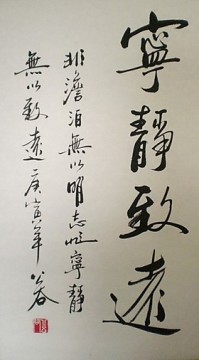 寧靜致遠
非澹泊無以明志非寧靜
無以致遠庚寅年